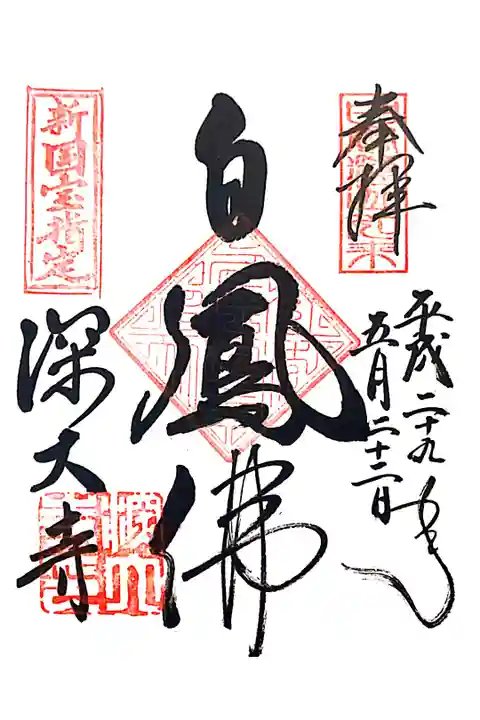 奉拝
平成二十九年
五月二十二日
白鳳佛
新国宝指定
深大寺
深大寺